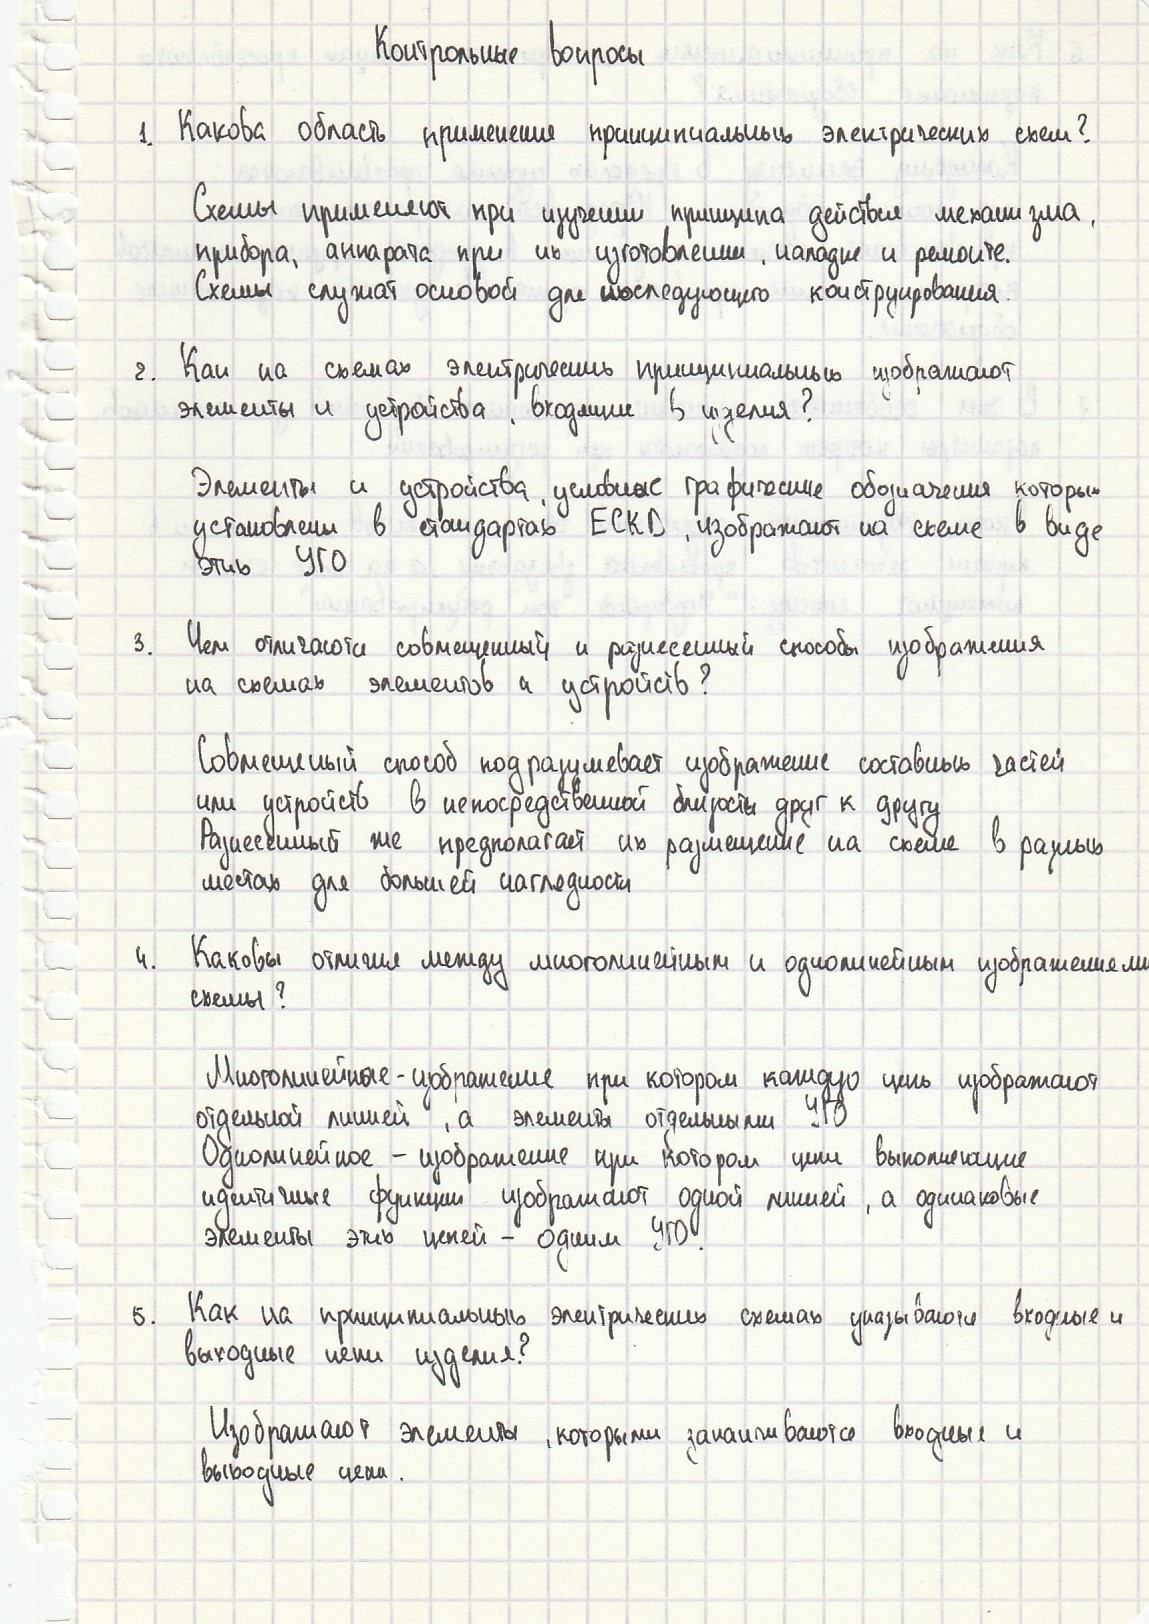 Контрольные вопросы
1. Какова область применения принципиальных электрических схем?
Схемы применяют при изучении принципа действия механизма,
прибора, аппарата при их изготовлении, наладке и ремонте.
Схемы служат основой для последующего конструирования.
2. Как на схемах электрических принципиальных изображают
элементы и устройства, входящие в изделия?
Элементы и устройства, условные графические обозначения которых
установлены в стандартах ЕСКД, изображают на схеме в виде
этих УГО
3. Чем отличаются совмещенный и разнесенный способы изображения
на схемах элементов и устройств?
Совмещеный способ подразумевает изображение составных частей
или устройств в непосредственной близости друг к другу
Разнесенный же предполагает их размещение на схеме в разных
местах для большей наглядности
4. Каковы отличия между многолинейным и однолинейным изображениями
схемы?
Многолинейные - изображение при котором каждую цепь изображают
отдельной линией, а элементы отдельными УГО
Однолинейное - изображение при котором цепи выполняющие
идентичные функции изображают одной линией, а одинаковые
элементы этих цепей - одним УГО.
5. Как на принципиальных электрических схемах указываются входные и
выходные цепи изделия?
Изображают элементы, которыми заканчиваются входные и
выходные цепи.